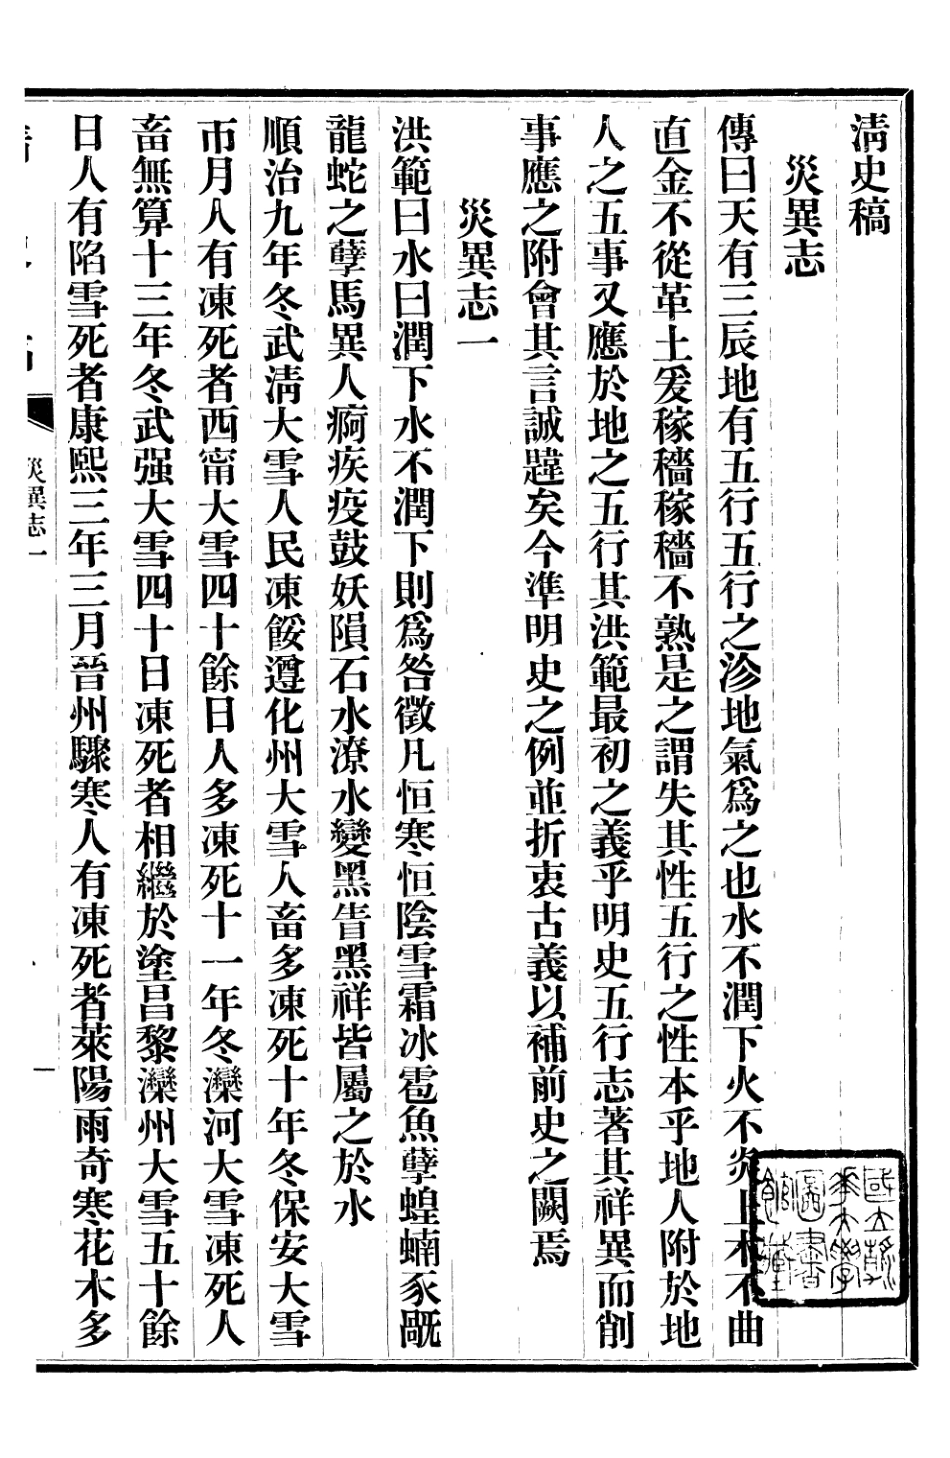 清史稿
災異志
傳曰天有三辰地有五行五行之沴地氣爲之也水不潤下火不炎上木不曲
直金不從革土爰稼穡稼穡不熟是之謂失其性五行之性本乎地人附於地
人之五事又應於地之五行其洪範最初之義乎明史五行志著其祥異而削
事應之附會其言誠韙矣今準明史之例並折衷古義以補前史之闕焉
災異志一
洪範曰水曰潤下水不潤下則爲咎徵凡恒寒恒陰雪霜冰雹魚孽蝗蝻豕旤
龍蛇之孽馬異人痾疾疫鼓妖隕石水潦水變黑眚黑祥皆屬之於水
順治九年冬武清大雪人民凍餒遵化州大雪人畜多凍死十年冬保安大雪
帀月人有凍死者西甯大雪四十餘日人多凍死十一年冬灤河大雪凍死人
畜無算十三年冬武强大雪四十日凍死者相繼於塗昌黎灤州大雪五十餘
日人有陷雪死者康熙三年三月晉州驟寒人有凍死者萊陽雨奇寒花木多
災異志一
一
國立清
華大學
圖書
館藏